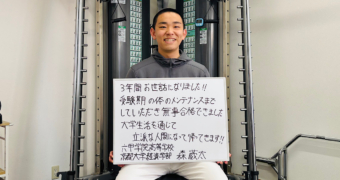 3年間お世話になりました!!
受験期の体のメンテナンスまで
していただき無事合格できました
大学生活を通して
立派な人間になって帰ってきます!!
六甲学院高等学校
京都大学経済学部 森 蔵太